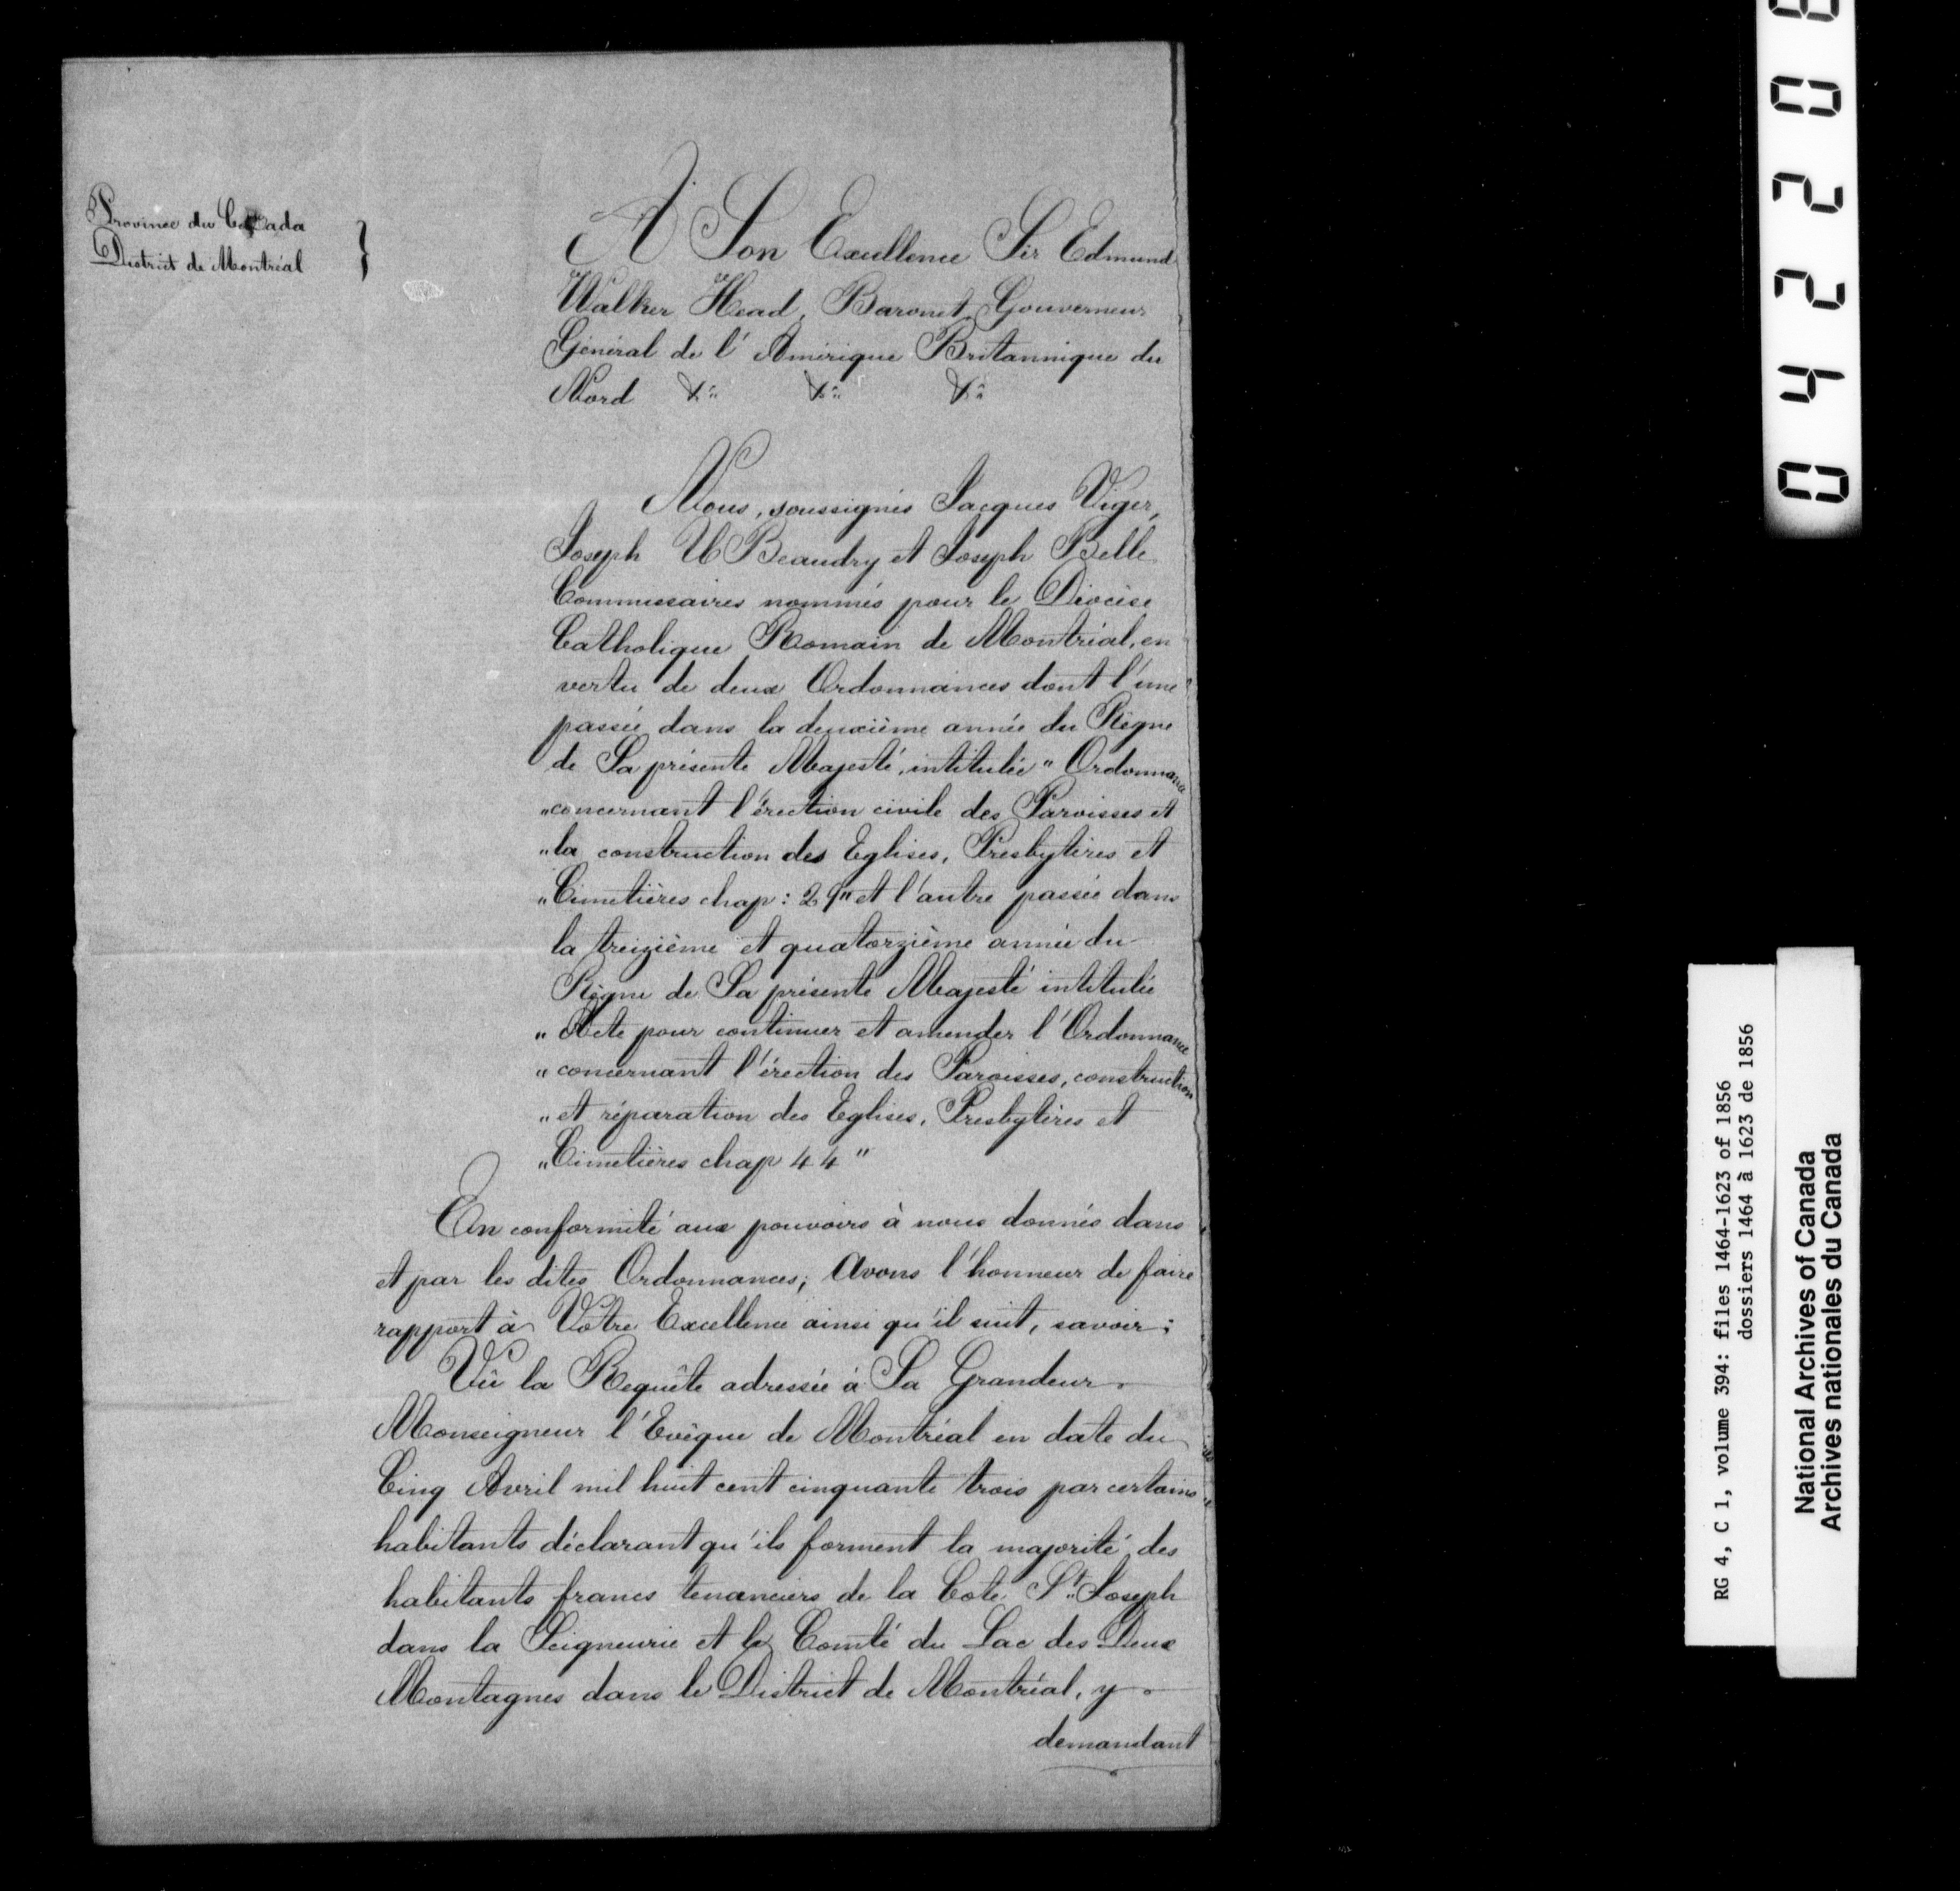 Province du Canada
District de Montréal
A Son Excellence Sir Edmund
Walker Head, Baronet, Gouverneur
Général de l'Amérique Britannique du
Nord &c &c &c
Nous, soussignés Jacques Viger,
Joseph U Beaudry et Joseph Belle
Commissaires nommés pour le Diocèse
Catholique Romain de Montréal, en
vertu de deux Ordonnances dont l'une
passée dans la deuxième année du Règne
de Sa présente Majesté, intitulée "Ordonnance
"concernant l'érection civile des Paroisses et
"la construction des Eglises, Presbytères et
"Cimetières chap: 29" et l'autre passée dans
la treizième et quatorzième année du
Règne de Sa présente Majesté intitulée
"Acte pour continuer et amender l'Ordonnance
"concernant l'érection des Paroisses, construction
"et réparation des Eglises, Presbytères et
"Cimetières chap 44"
En conformité aux pouvoirs à nous donnés dans
et par les dites Ordonnances; Avons l'honneur de faire
rapport à Votre Excellence ainsi qu'il suit, savoir;
Vû la Requête adressée à Sa Grandeur
Monseigneur l'Evêque de Montréal en date du
Cinq Avril mil huit cent cinquante trois par certains
habitants déclarant qu'ils forment la majorité des
habitants francs tenanciers de la Cote St. Joseph
dans la Seigneurie et le Comté du Lac des Deux
Montagnes dans le District de Montréal, y
demandant
0 4 2 2 0
RG 4, C 1, volume 394: files 1464-1623 of 1856
dossiers 1464 à 1623 de 1856
National Archives of Canada
Archives nationales du Canada